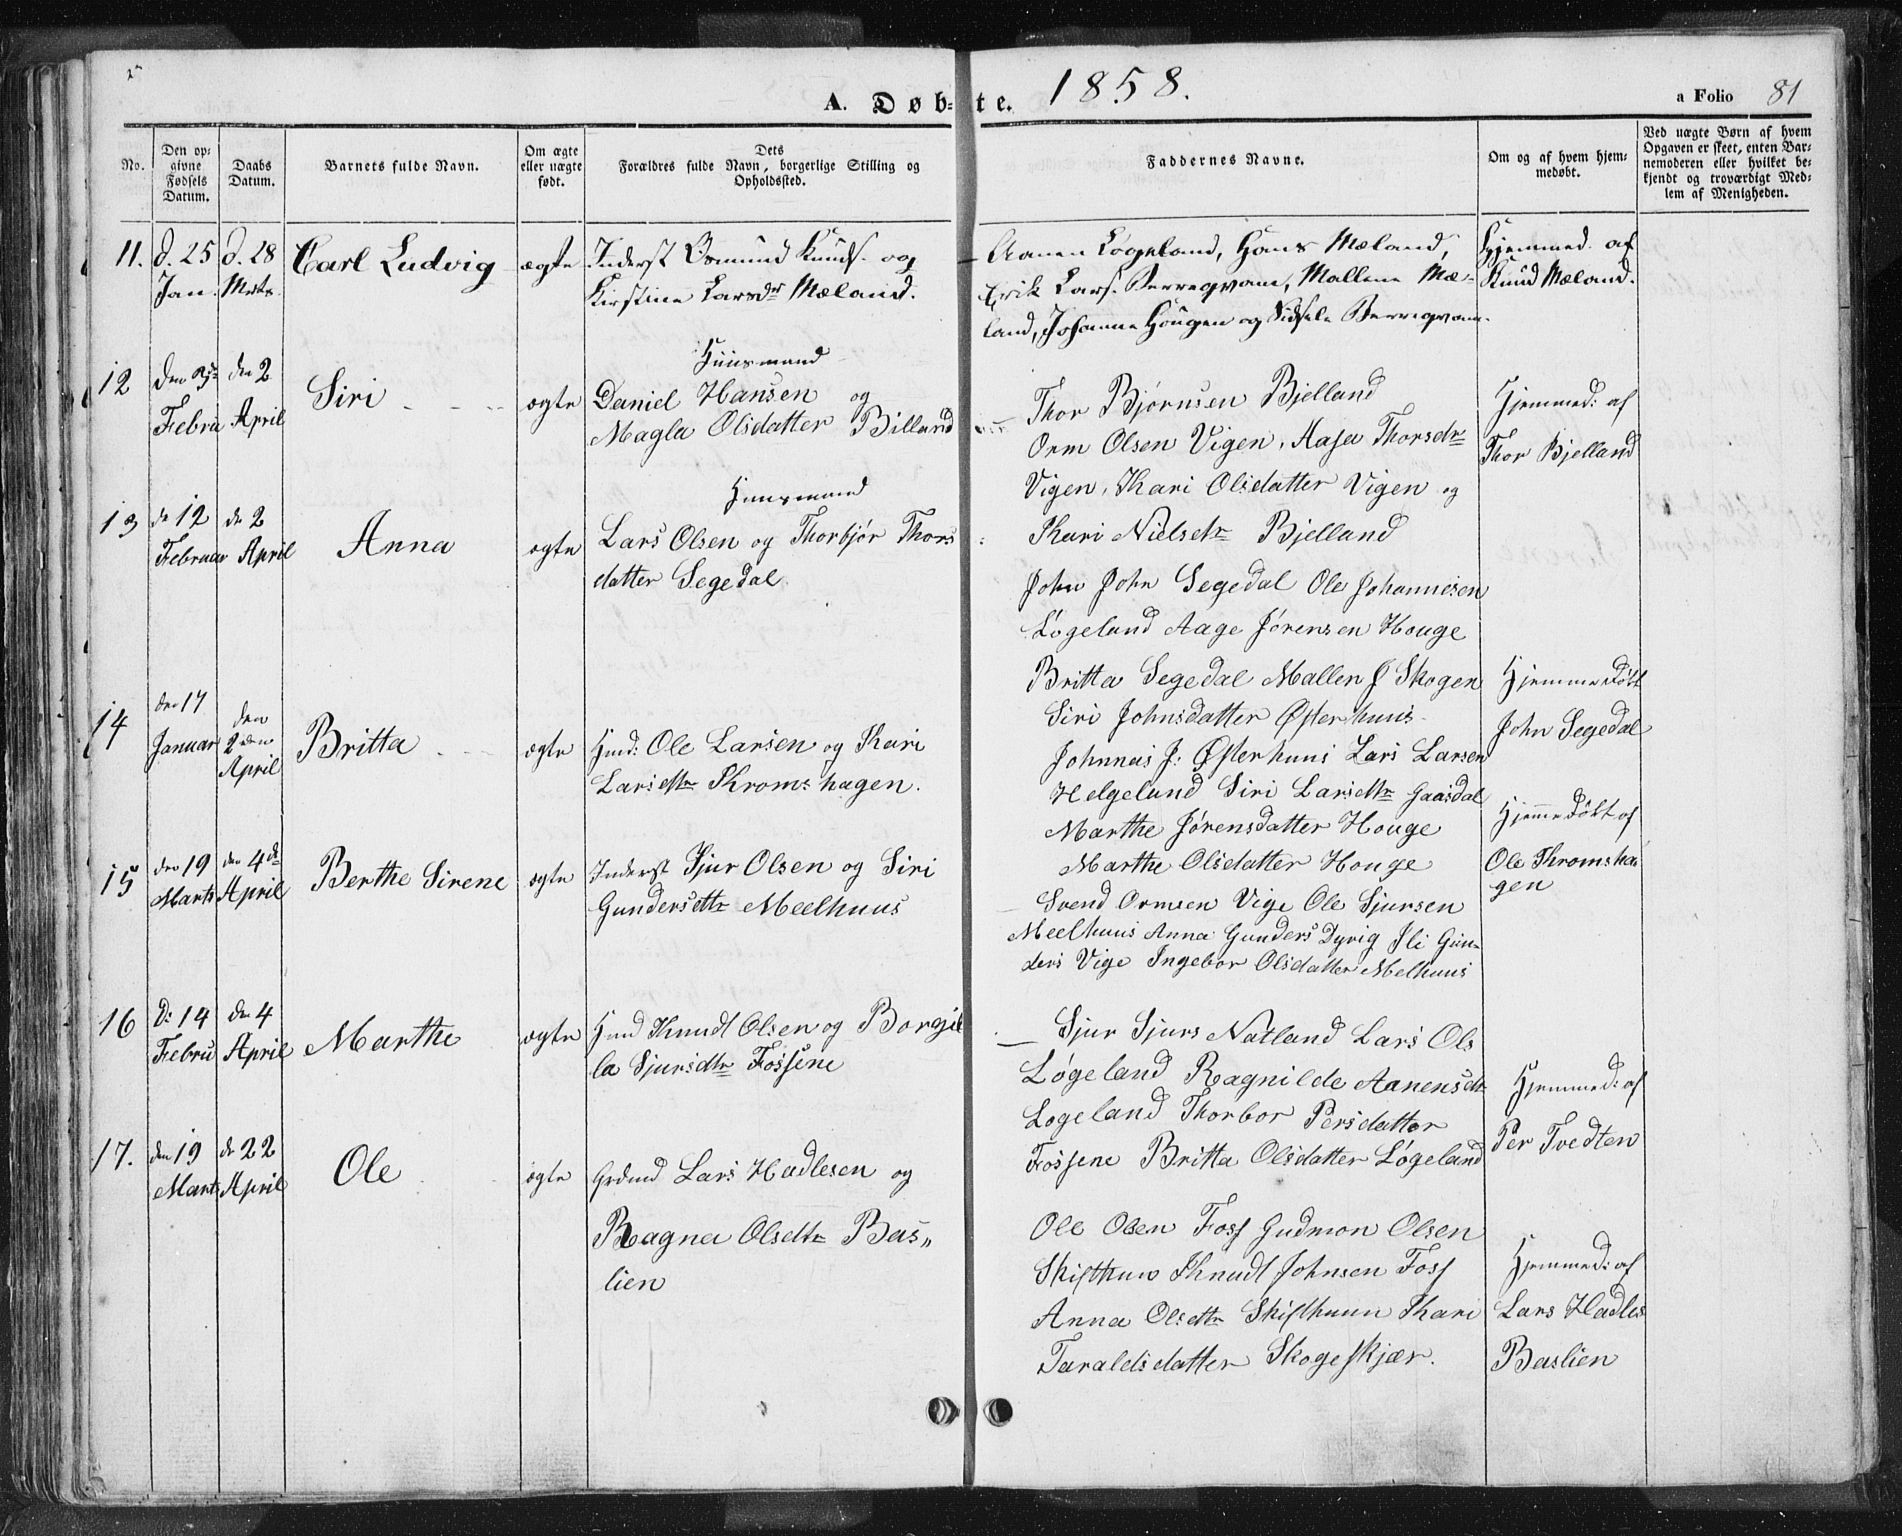 A. Døbte. 1858.
a Folio 81
No.
Den opgivne Fødsels Datum.
Daabs Datum.
Barnets fulde Navn.
Om ægte eller uægte født.
Dets
Forældres fulde Navn, borgerlige Stilling og
Opholdssted.
Faddernes Navne.
Om og af hvem hjemmedøbt.
Ved uægte Børn af hvem
Opgaven er skeet, enten Bar-
nemoderen eller hvilket be-
kjendt og troværdigt Med-
lem af Menigheden.
11. d. 25 Jan. d. 28 Marts Carl Ludvig ægte
Inderst Osmund Knuds. og
Kirstine Larsdtr Mæland.
Aanen Løgeland, Hans Mæland,
Erik Lars. Berregvam, Mallene Mæ-
land, Johanne Hougen og Sidsele Berregvam.
Hjemmed. af
Knud Mæland.
12 Febru den 2 April Siri ægte
Huusmand
Daniel Hansen og
Magla Olsdatter Billand
Thor Bjørnsen Bjelland
Orm Olsen Vigen, Aasa Thorsdtr
Vigen, Kari Olsdatter Vigen og
Kari Nielsdtr Bjelland
Hjemmed: af
Thor Bjelland
13 de 12 Februar de 2 April Anna ægte
Huusmand
Lars Olsen og Thorbjør Thors
datter Segedal
John John Segedal Ole Johannesen
Løgeland Aage Jørensen Houge
Britta Segedal Mallen J Skogen
Siri Johnsdatter Østerhuus
Hjemmedøbt
John Segedal
14 den 17 Januar den 2den April Britta ægte
Hmd: Ole Larsen og Kari
Larsdtr Kromshagen.
Johnnas J: Østerhuus Lars Larsen
Helgeland Siri Larsdtr Gaasdal
Marthe Jørensdatter Houge
Marthe Olsdatter Houge
Hjemmedøbt af
Ole Kromsha
gen
15 den 19 Marts den 4de April Berthe Sirene ægte
Inderst Sjur Olsen og Siri
Gundersdtr Meelhuus
Svend Ormsen Vige Ole Sjursen
Meelhuus Anna Gunders Dyrig Ili Gun-
ders Vige Ingebor Olsdatter Melhuus
16 D: 14 Febru den 4 April Marthe ægte
Hmd Knudt Olsen og Borgil
la Sjursdtr Fossene
Sjur Sjurs Natland Lars Ols
Løgeland Ragnilde Aanensdtr
Logeland Thorbor Persdatter
Fossene Britta Olsdatter Løgeland
Hjemmed: af
Per Tvedten
17. den 19 Marts de 22 April Ole ægte
Grdmd Lars Hadlesen og
Ragna Olsdtr Bas„
lien
Ole Olsen Foss Gudmon Olsen
Skifthun Knudt Johnsen Foss
Anna Olsdtr Skifthuun Kari
Taraldsdatter Skogeskjær.
Hjemmed: af
Lars Hadles
Baslien